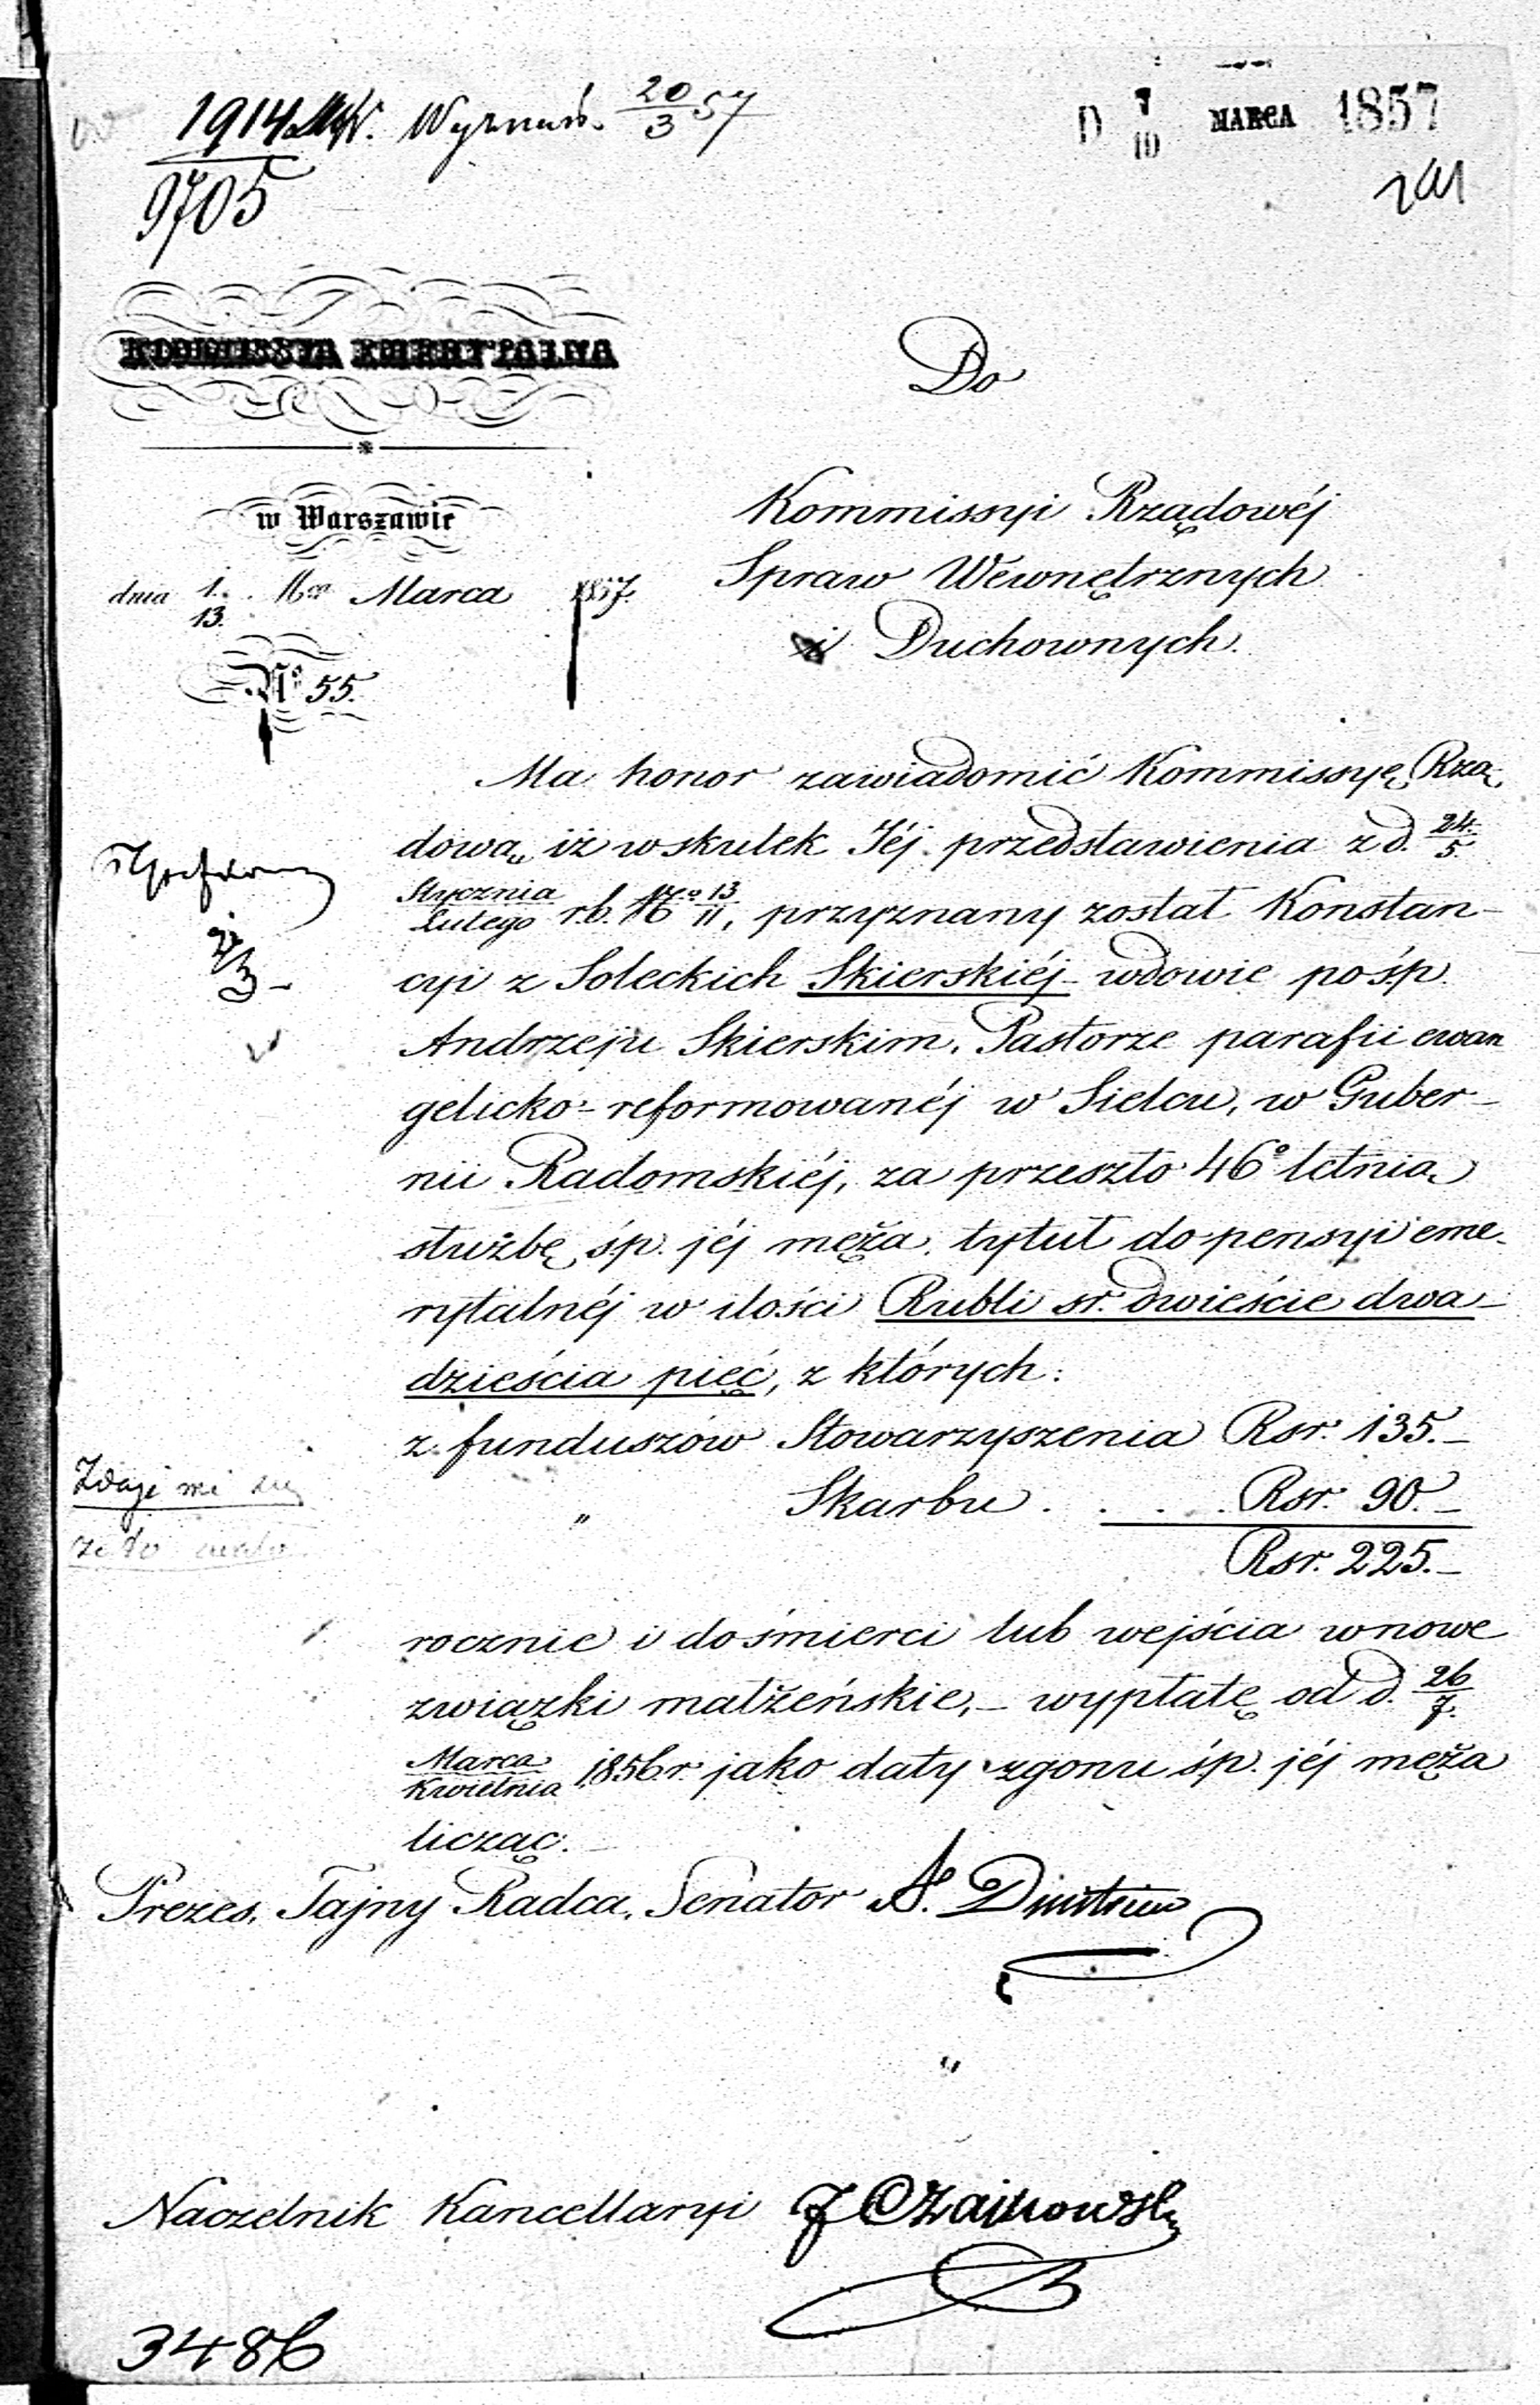 1914 Wyznań. 20/3 57
9705
D 7/19 MARCA 1857
241
KOMMISSYA EMERYTALNA
w Warszawie
dnia 1/13. Marca 1857.
Nº 55.
Do
Kommissyi Rządowéj
Spraw Wewnętrznych
i Duchownych.
Ma honor zawiadomić Kommissyę Rzą-
dową, iż wskutek Jéj przedstawienia z d. 24/5.
Stycznia/Lutego r.b. Nº 13/11, przyznany został Konstan-
cyi z Soleckich Skierskiéj wdowie po ś.p.
Andrzeju Skierskim, Pastorze parafii ewan
gelicko-reformowanéj w Sielcu, w Guber-
nii Radomskiéj, za przeszło 46º letnią
służbę śp. jéj męża, tytuł do pensyi eme-
rytalnéj w ilości Rubli sr. dwieście dwa-
dzieścia pięć, z których:
z funduszów Stowarzyszenia Rsr. 135.–
" Skarbu . . . . Rsr. 90.–
Rsr. 225.–
Zdaje mi się
że to mało
rocznie i do śmierci lub wejścia w nowe
związki małżeńskie,– wypłatę od d. 26/7.
Marca/Kwietnia 1856 r. jako daty zgonu śp. jéj męża
licząc.
Prezes, Tajny Radca, Senator A. Dmitriew
Naczelnik Kancellaryi J Czajkowski
3486